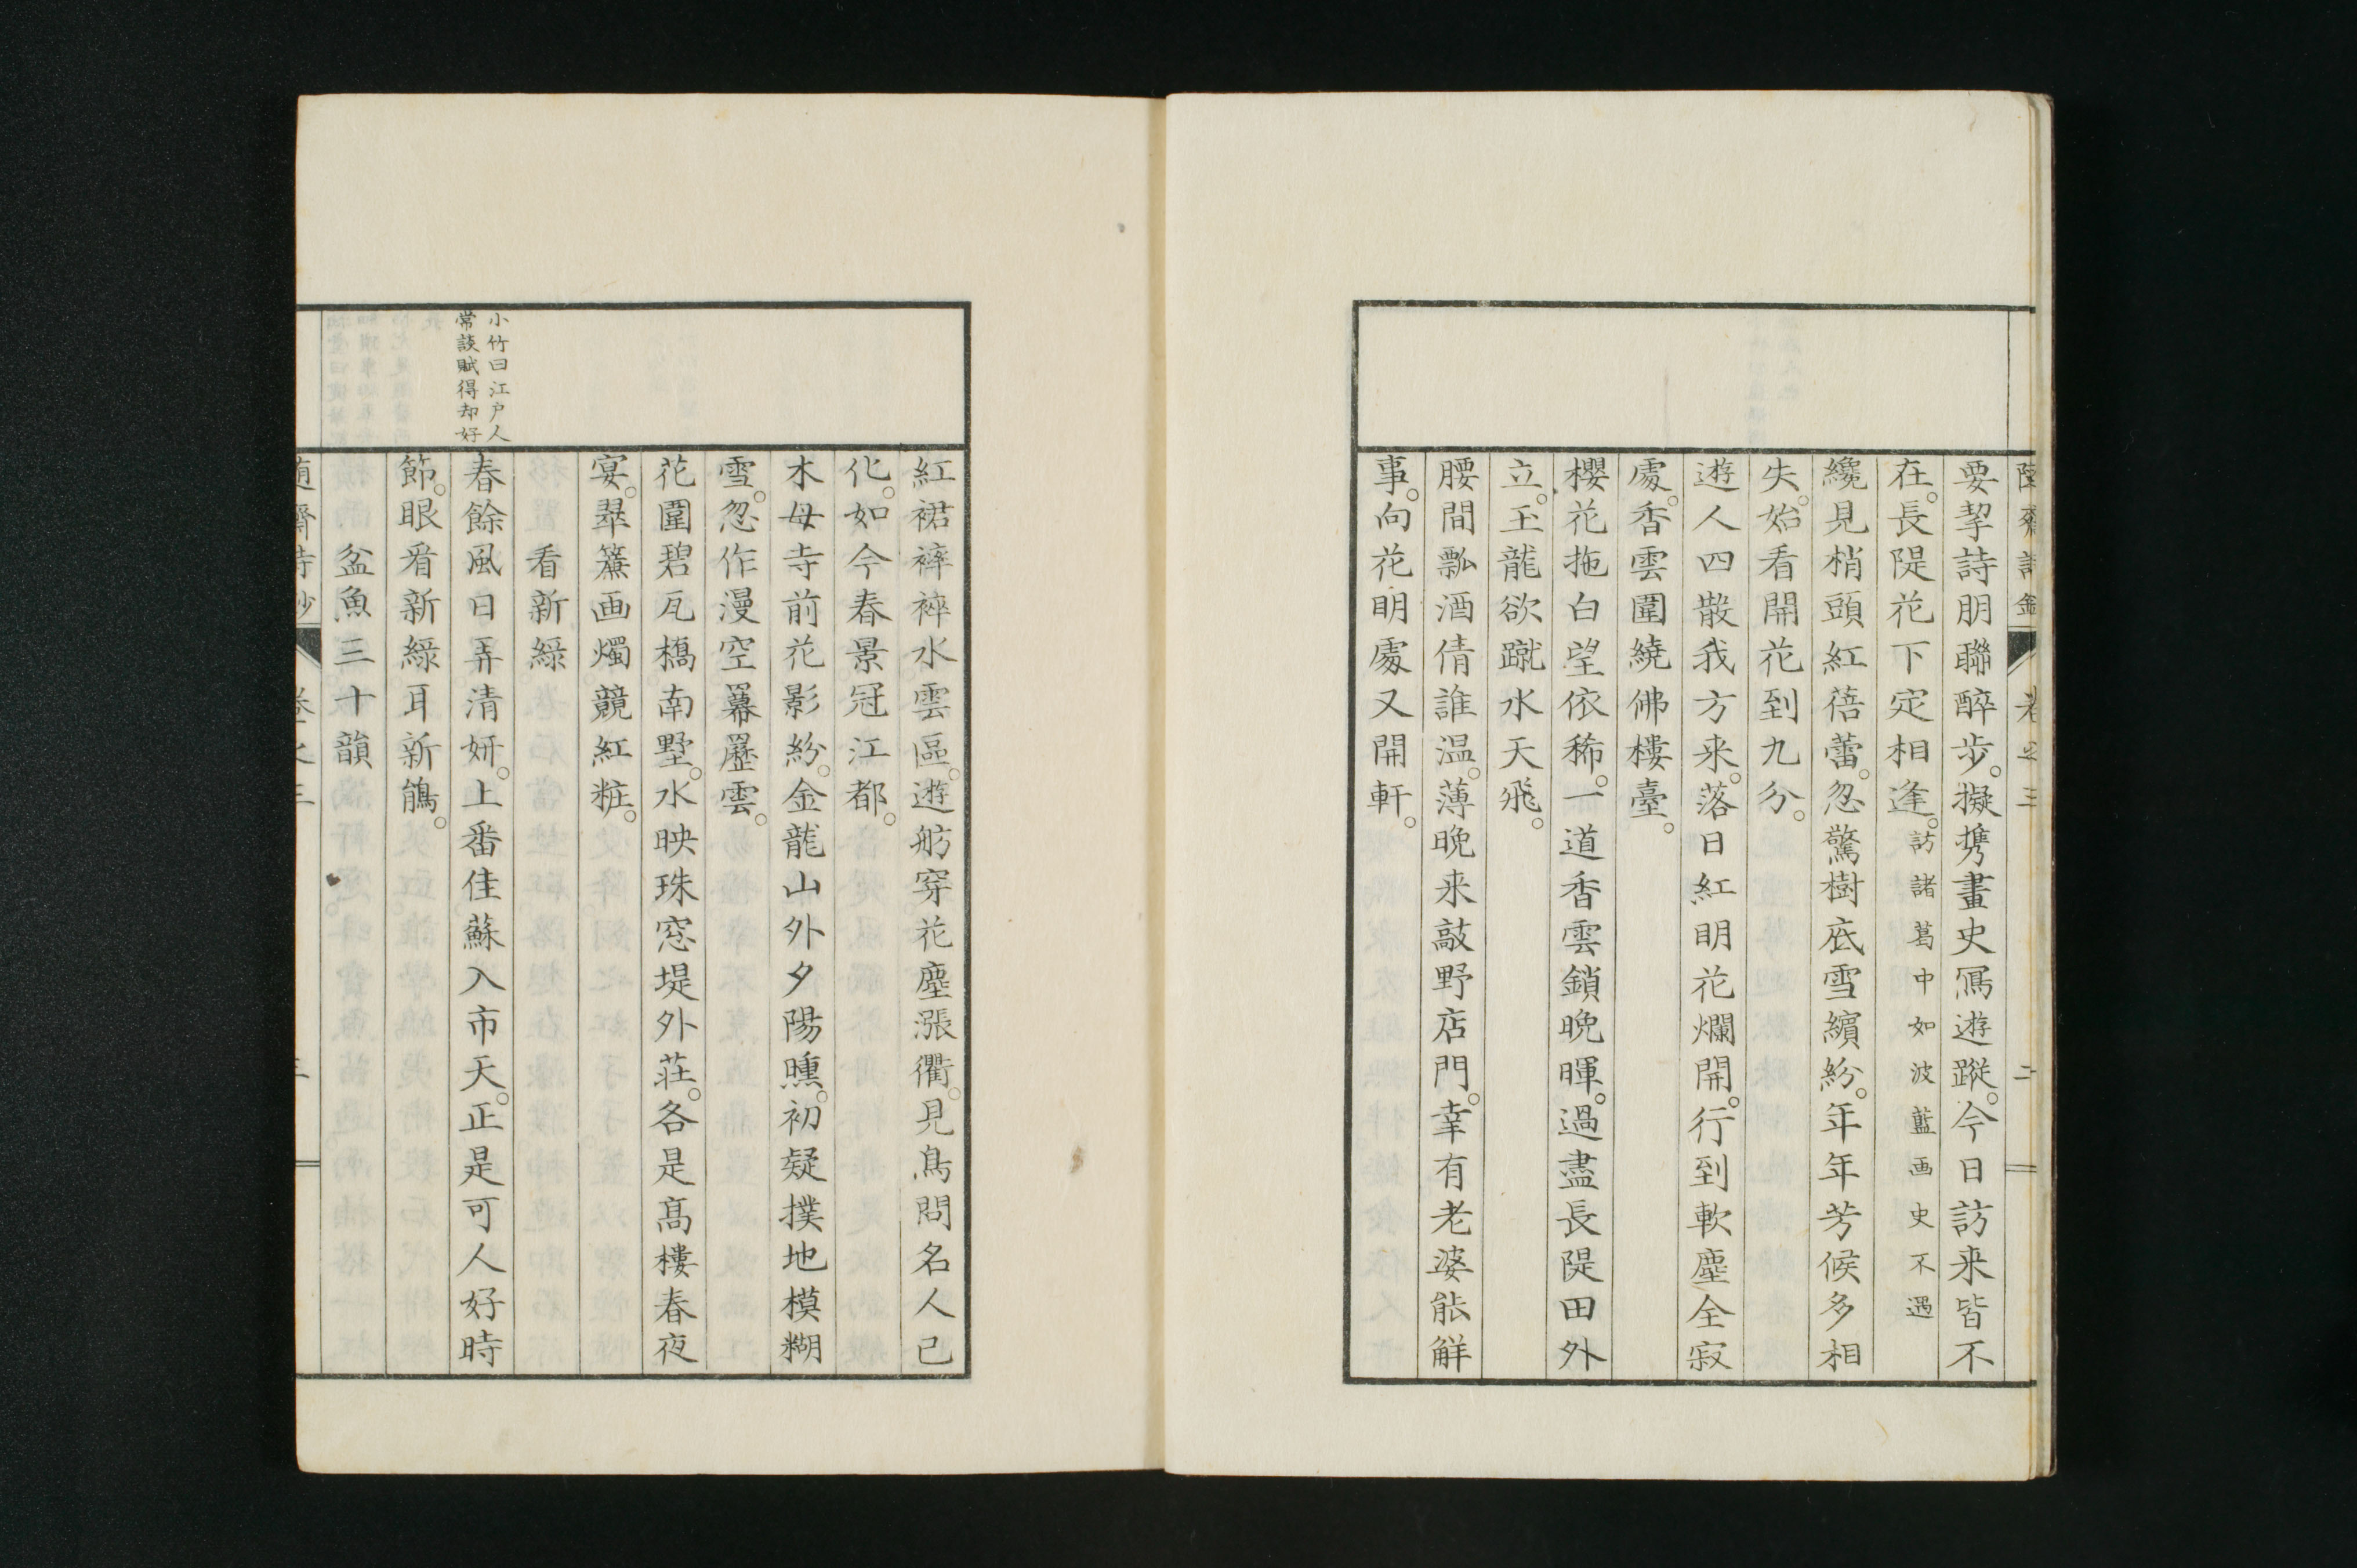 要挈詩朋聯醉步。擬携畫史冩遊蹤。今日訪来皆不
在。長隄花下定相逢。訪諸葛中如波藍画史不遇
纔見梢頭紅蓓蕾。忽驚樹底雪繽紛。年年芳候多相
失。始看開花到九分。
遊人四散我方来。落日紅明花爛開。行到軟塵全寂
處。香雲圍繞佛樓臺。
櫻花拖白望依稀。一道香雲鎖晩暉。過盡長隄田外
立。玉龍欲蹴水天飛。
腰間瓢酒倩誰温。薄晩来敲野店門。幸有老婆能觧
事。向花明處又開軒。
紅裙裶裶水雲區。遊舫穿花塵漲衢。見鳥問名人已
化。如今春景冠江都。
木母寺前花影紛。金龍山外夕陽曛。初疑撲地模糊
雪。忽作漫空羃䍥雲。
花圍碧瓦橋南墅。水映珠窓堤外莊。各是髙樓春夜
宴。翠簾画燭競紅粧。
看新緑
小竹曰江戸人
常談賦得却好
春餘風日弄清妍。上番佳蘇入市天。正是可人好時
節。眼看新緑耳新鵑。
盆魚三十韻